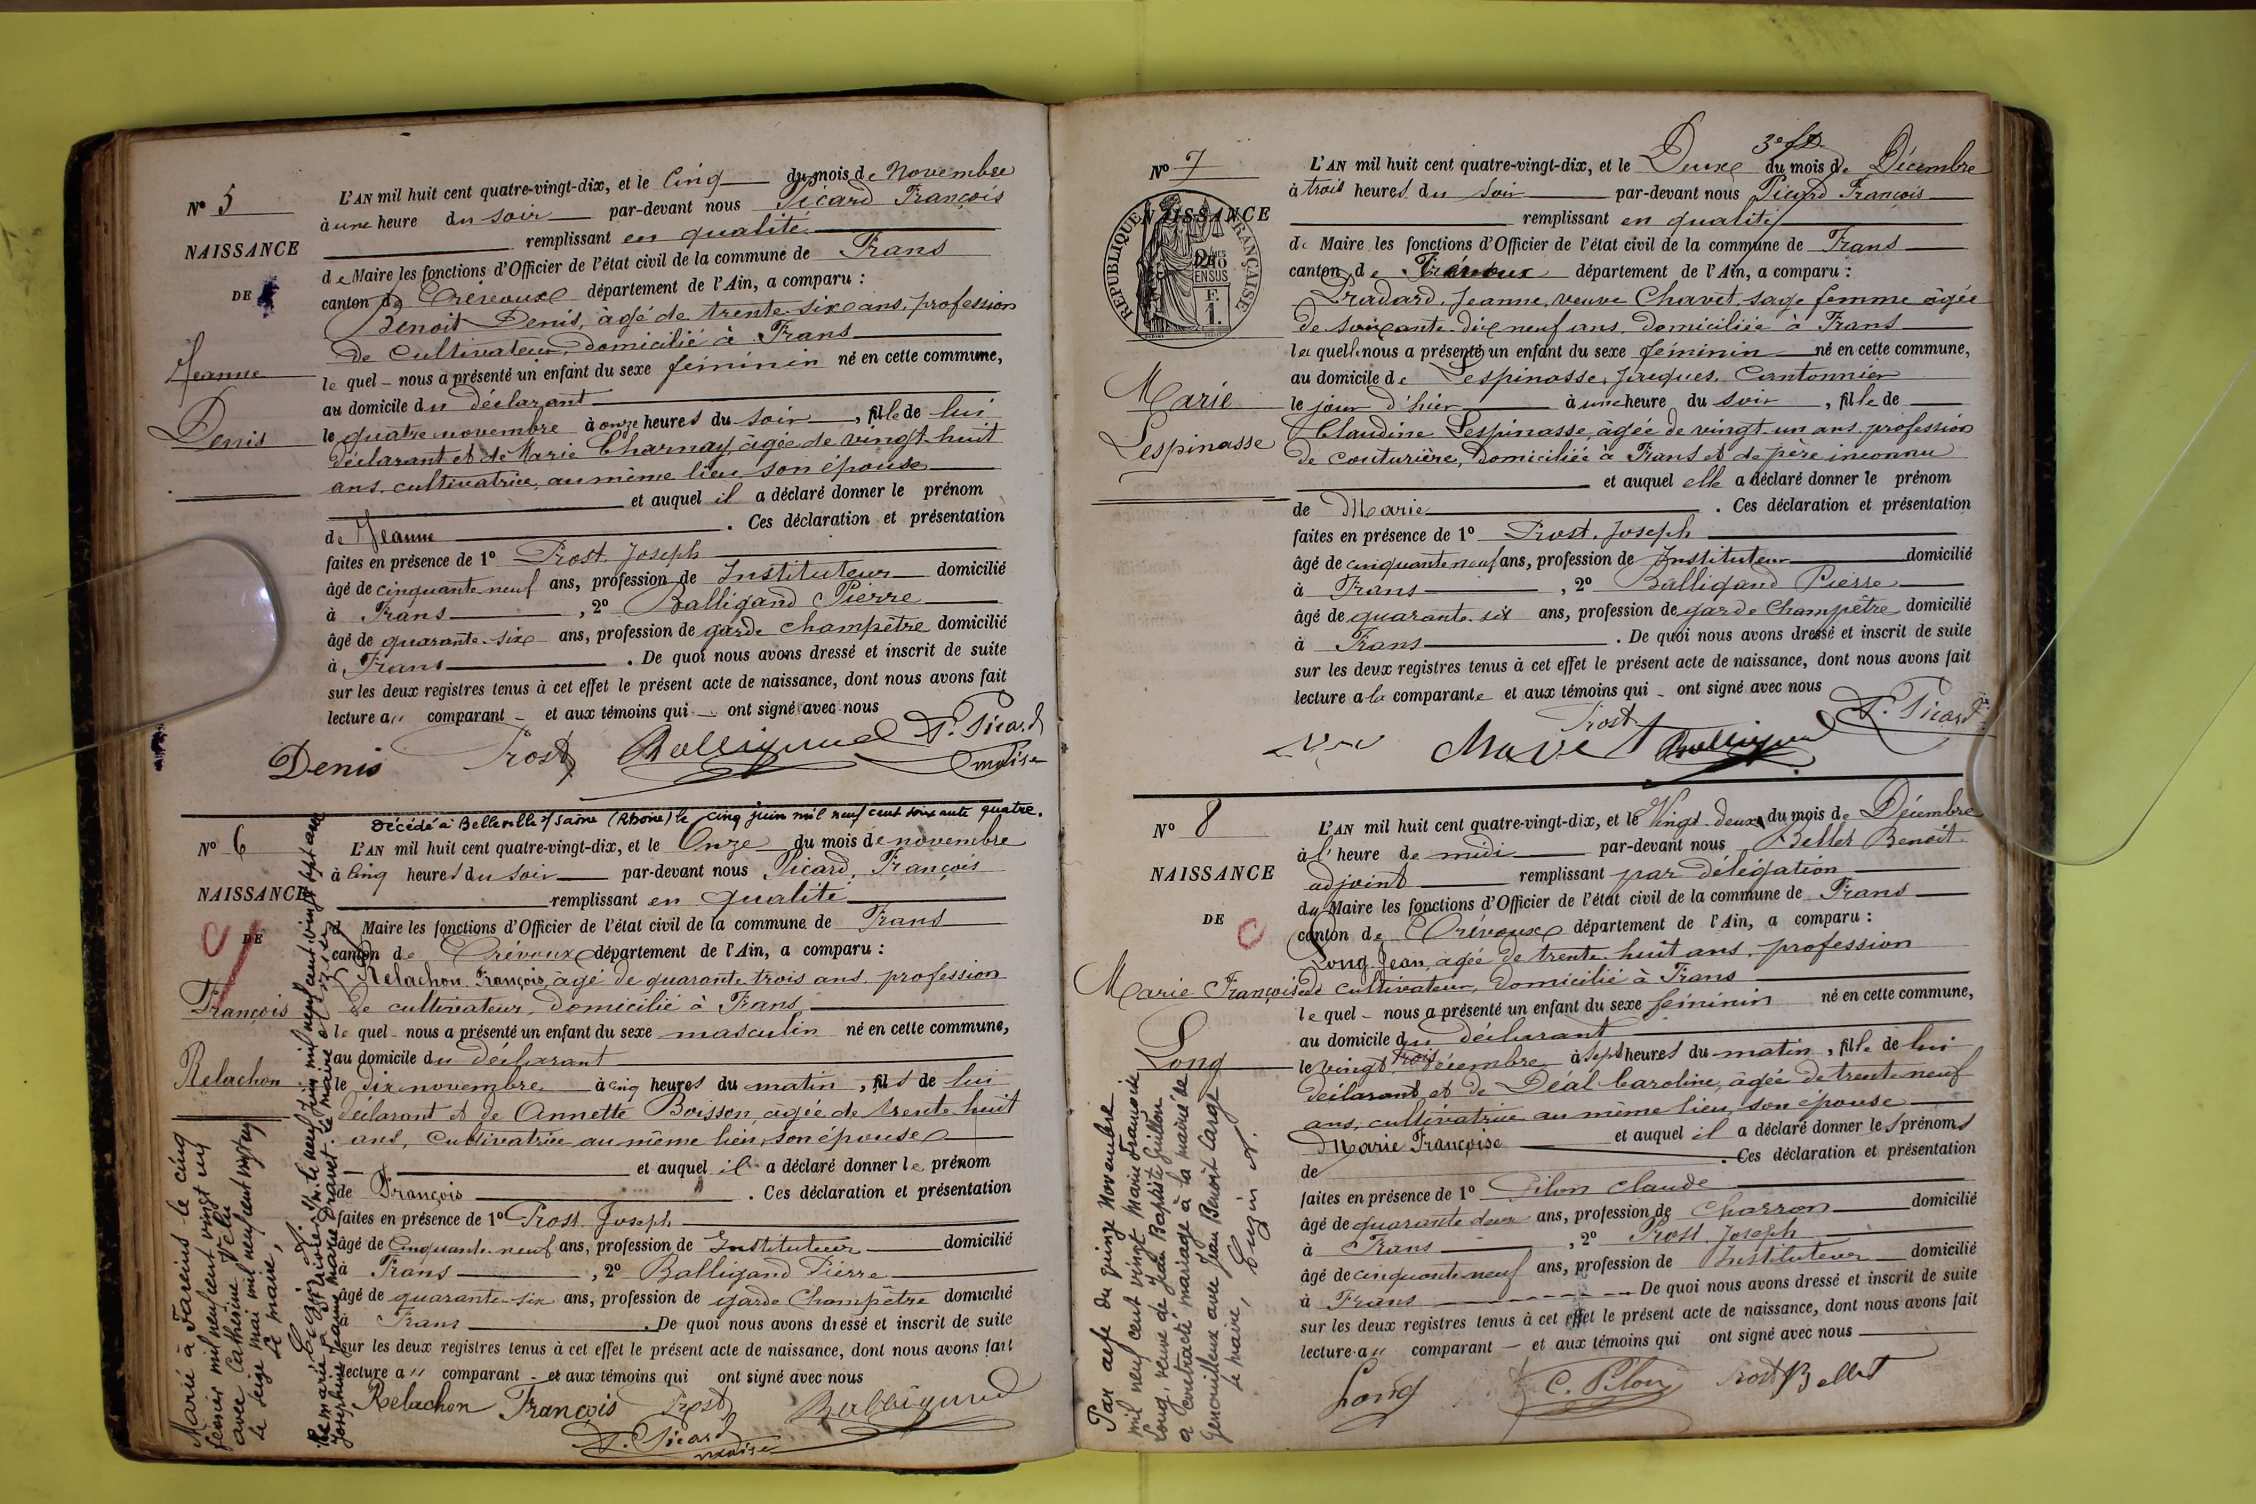 N° 5
NAISSANCE
DE
Jeanne
Denis
L'AN mil huit cent quatre-vingt-dix, et le Cinq du mois de Novembre
à une heure du soir par-devant nous Picard François
remplissant en qualité
de Maire les fonctions d'Officier de l'état civil de la commune de Frans
canton de Trévoux département de l'Ain, a comparu :
Benoit Denis, âgé de trente six ans, profession
de Cultivateur, domicilié à Frans
le quel nous a présenté un enfant du sexe féminin né en cette commune,
au domicile du déclarant
le quatre novembre à onze heures du soir, fille de lui
déclarant et de Marie Charnay, âgée de vingt huit
ans, cultivatrice, au même lieu son épouse
et auquel il a déclaré donner le prénom
de Jeanne . Ces déclaration et présentation
faites en présence de 1° Prost Joseph
âgé de cinquante neuf ans, profession de Instituteur domicilié
à Frans , 2° Balligand Pierre
âgé de quarante-six ans, profession de garde champêtre domicilié
à Frans . De quoi nous avons dressé et inscrit de suite
sur les deux registres tenus à cet effet le présent acte de naissance, dont nous avons fait
lecture au comparant et aux témoins qui ont signé avec nous
Denis Prost Balligand F. Picard
maire
Décédé à Belleville s/ Saône (Rhône) le cinq juin mil neuf cent soixante quatre.
N° 6
NAISSANCE
DE
François
Relachon
L'AN mil huit cent quatre-vingt-dix, et le Onze du mois de novembre
à cinq heures du soir par-devant nous Picard, François
remplissant en qualité
de Maire les fonctions d'Officier de l'état civil de la commune de Frans
canton de Trévoux département de l'Ain, a comparu :
Relachon François, âgé de quarante trois ans, profession
de cultivateur, domicilié à Frans
le quel nous a présenté un enfant du sexe masculin né en cette commune,
au domicile du déclarant
le dix novembre à cinq heures du matin, fils de lui
déclarant et de Annette Boisson, âgée de trente huit
ans, Cultivatrice au même lieu, son épouse
et auquel il a déclaré donner le prénom
de François . Ces déclaration et présentation
faites en présence de 1° Prost Joseph
âgé de Cinquante neuf ans, profession de Instituteur domicilié
à Frans , 2° Balligand Pierre
âgé de quarante six ans, profession de garde Champêtre domicilié
à Frans . De quoi nous avons dressé et inscrit de suite
sur les deux registres tenus à cet effet le présent acte de naissance, dont nous avons fait
lecture au comparant et aux témoins qui ont signé avec nous
Relachon François Prost Balligand
F. Picard
maire
Marié à Fareins le cinq
février mil neuf cent vingt un
avec Catherine Velu
le seize mai mil neuf cent vingt un
Le maire,
Cugin A.
Remarié à St Trivier le neuf juin mil neuf cent vingt sept avec
Josephine Jeanne Marie Dravet. Le maire
N° 7
NAISSANCE
DE
RÉPUBLIQUE FRANÇAISE
Marie
Lespinasse
3e f.
L'AN mil huit cent quatre-vingt-dix, et le Deuxe du mois de Décembre
à trois heures du soir par-devant nous Picard François
remplissant en qualité
de Maire les fonctions d'Officier de l'état civil de la commune de Frans
canton de Trévoux département de l'Ain, a comparu :
Pradard, Jeanne, veuve Chavet, sage femme âgée
de soixante dix neuf ans, domiciliée à Frans
la quelle nous a présenté un enfant du sexe féminin né en cette commune,
au domicile de Lespinasse, Jacques, Cantonnier
le jour d'hier à une heure du soir, fille de
Claudine Lespinasse, âgée de vingt un ans, profession
de couturière, domiciliée à Frans et de père inconnu
et auquel elle a déclaré donner le prénom
de Marie . Ces déclaration et présentation
faites en présence de 1° Prost, Joseph
âgé de cinquante neuf ans, profession de Instituteur domicilié
à Frans , 2° Balligand Pierre
âgé de quarante six ans, profession de garde Champêtre domicilié
à Frans . De quoi nous avons dressé et inscrit de suite
sur les deux registres tenus à cet effet le présent acte de naissance, dont nous avons fait
lecture a la comparante et aux témoins qui ont signé avec nous
Prost F. Picard
Chavet Balligand
N° 8
NAISSANCE
DE
Marie Françoise
Long
L'AN mil huit cent quatre-vingt-dix, et le Vingt deux du mois de Décembre
à l'heure de midi par-devant nous Bellet Benoit
adjoint remplissant par délégation
du Maire les fonctions d'Officier de l'état civil de la commune de Frans
canton de Trévoux département de l'Ain, a comparu :
Long Jean, âgé de trente huit ans, profession
de cultivateur, domicilié à Frans
le quel nous a présenté un enfant du sexe féminin né en cette commune,
au domicile du déclarant
le vingt trois décembre à sept heures du matin, fille de lui
déclarant et de Déal Caroline, âgée de trente neuf
ans, cultivatrice au même lieu, son épouse
et auquel il a déclaré donner les prénoms
de Marie Françoise . Ces déclaration et présentation
faites en présence de 1° Pilon Claude
âgé de quarante deux ans, profession de Charron domicilié
à Frans , 2° Prost Joseph
âgé de cinquante neuf ans, profession de Instituteur domicilié
à Frans . De quoi nous avons dressé et inscrit de suite
sur les deux registres tenus à cet effet le présent acte de naissance, dont nous avons fait
lecture au comparant et aux témoins qui ont signé avec nous
Long C. Pilon Prost Bellet
Par acte du quinze Novembre
mil neuf cent vingt Marie Françoise
Long, veuve de Jean Baptiste Guillon
a contracté mariage à la mairie de
Genouilleux avec Jean Benoit Large
Le maire, Cugin A.